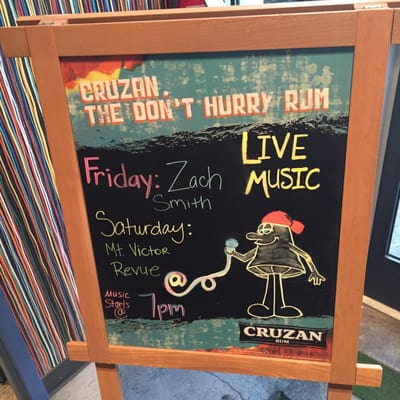 CRUZAN.
THE DON'T HURRY RUM
LIVE
MUSIC
Friday: Zach
Smith
Saturday:
Mt. Victor
Revue
Music
Starts
@ 7pm
@
CRUZAN
RUM